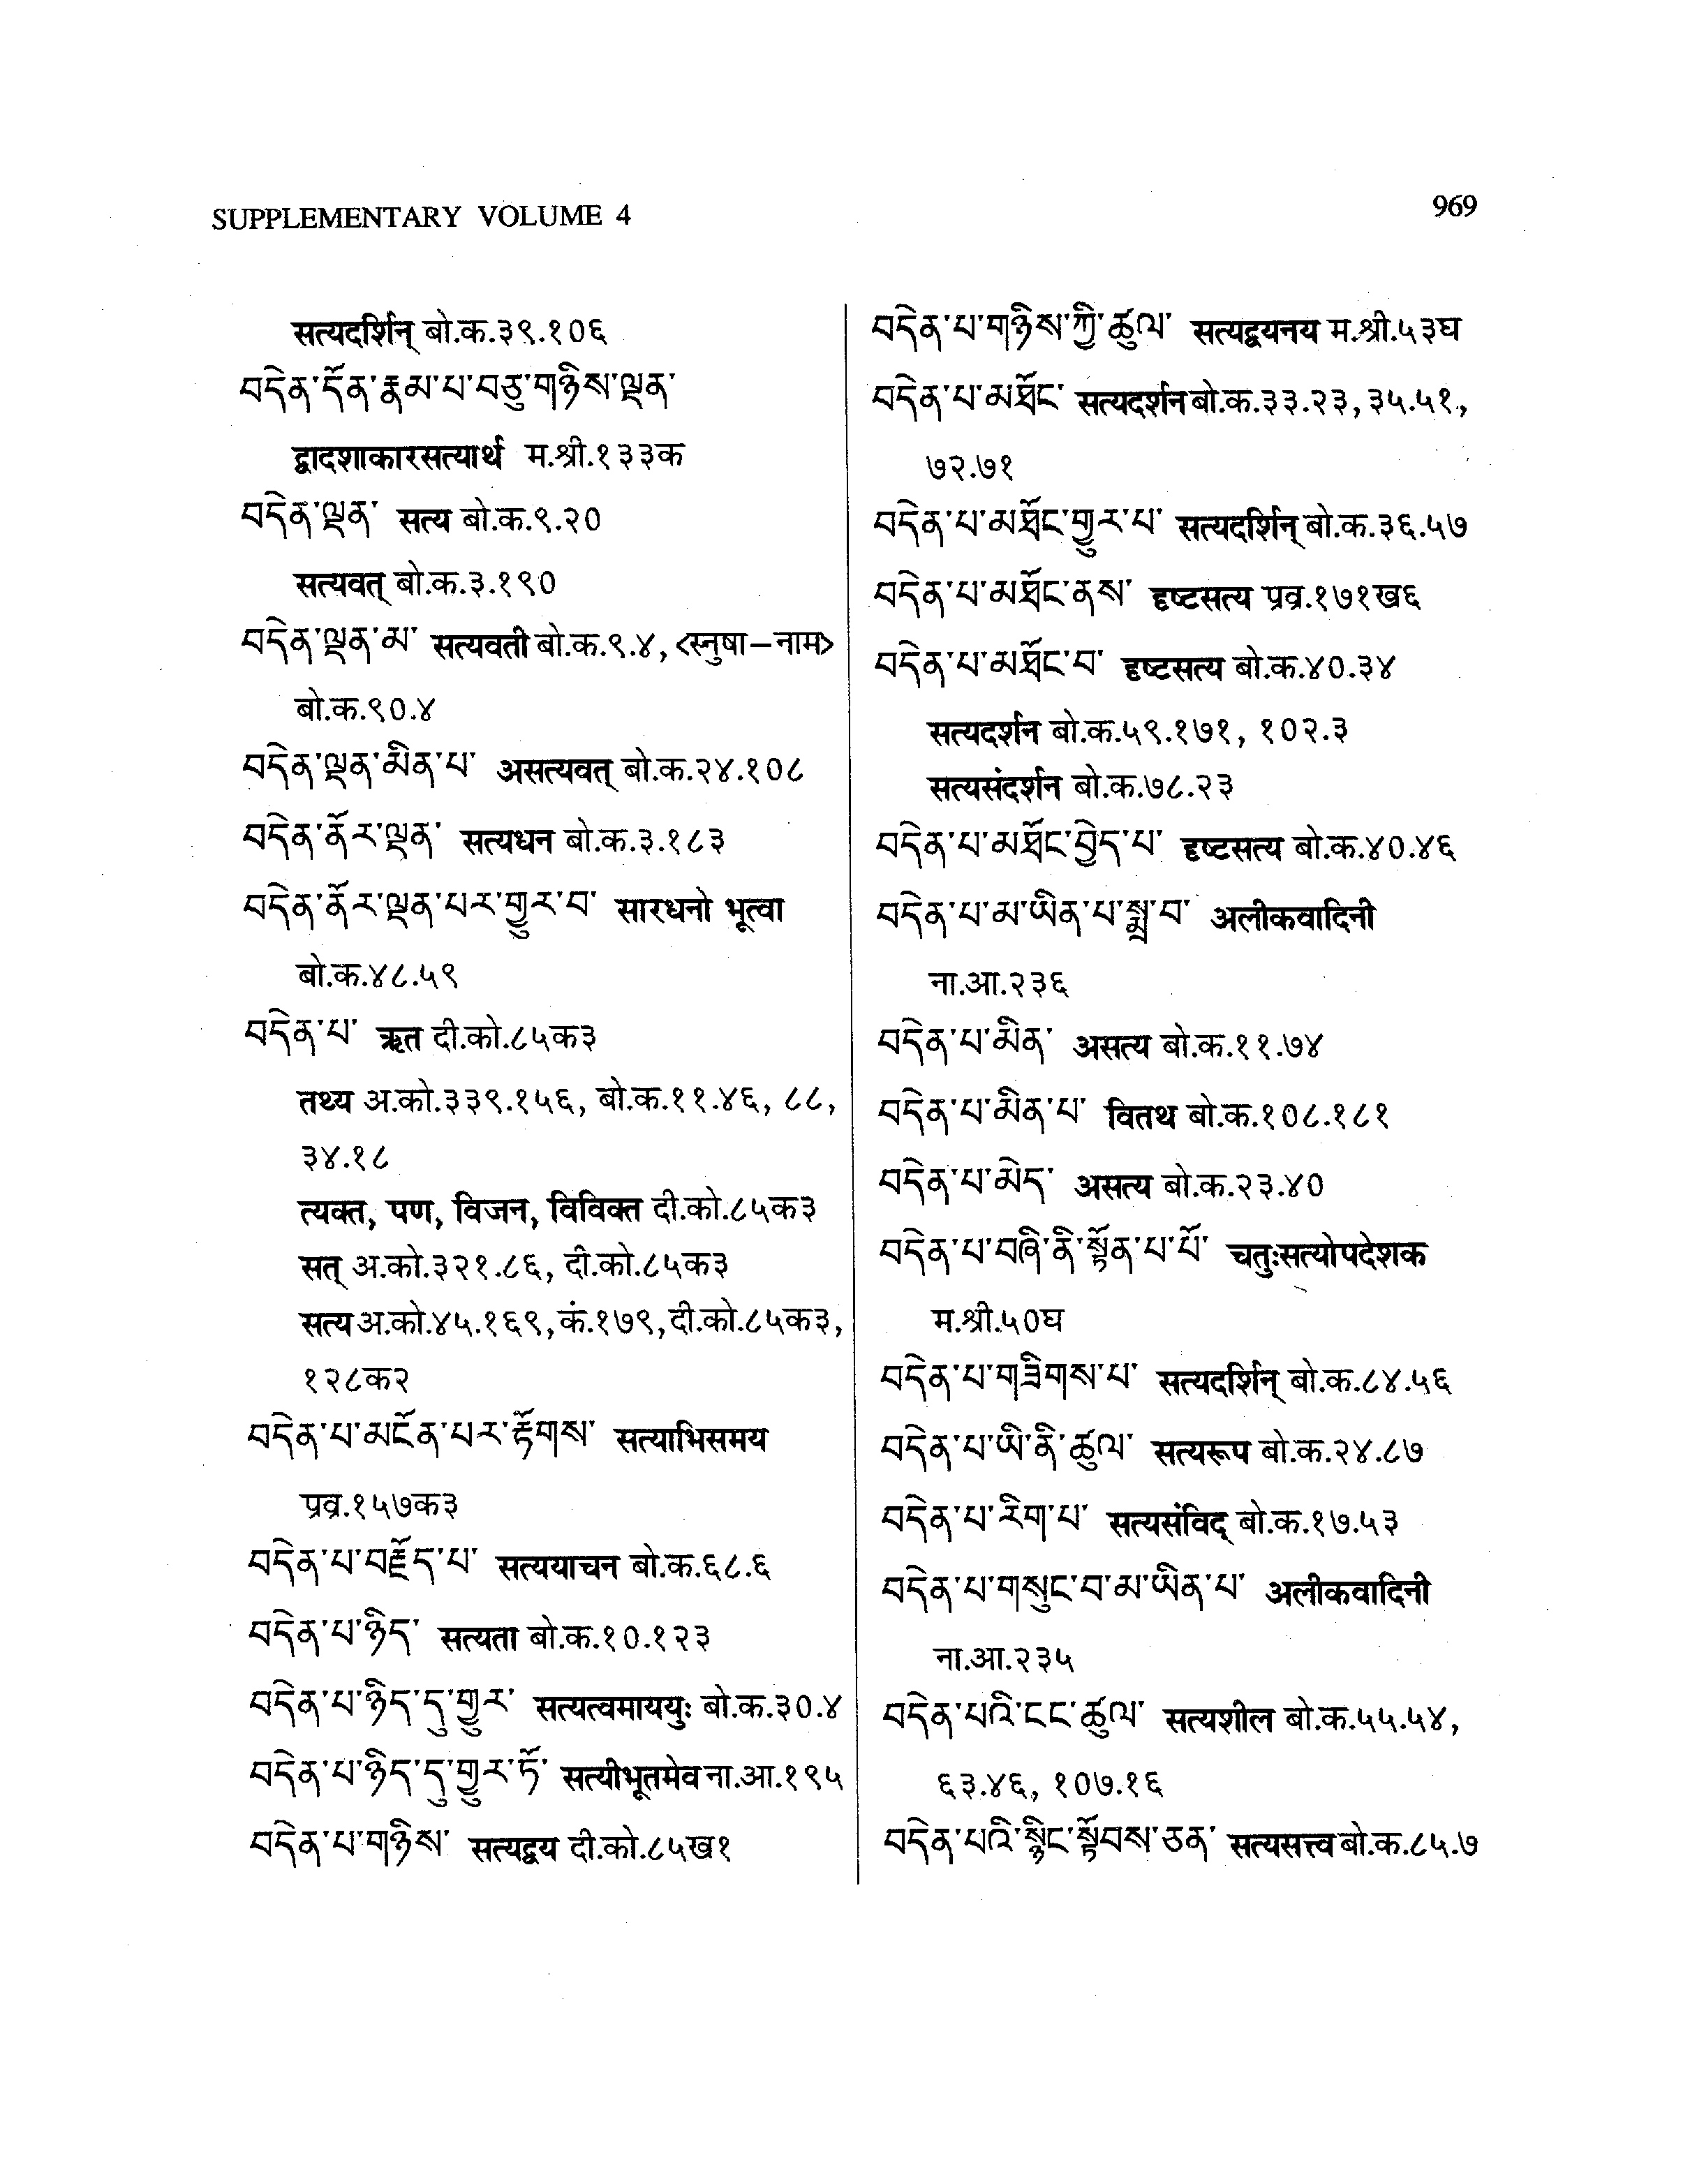 SUPPLEMENTARY VOLUME 4
969
सत्यदर्शिन् बो.क.३९.१०६
བདེན་དོན་རྣམ་པ་བཅུ་གཉིས་ལྡན་
द्वादशाकारसत्यार्थ म.श्री.१३३क
བདེན་ལྡན་ सत्य बो.क.९.२०
सत्यवत् बो.क.३.१९०
བདེན་ལྡན་མ་ सत्यवती बो.क.९.४, <स्नुषा–नाम>
बो.क.९०.४
བདེན་ལྡན་མིན་པ་ असत्यवत् बो.क.२४.१०८
བདེན་ནོར་ལྡན་ सत्यधन बो.क.३.१८३
བདེན་ནོར་ལྡན་པར་གྱུར་བ་ सारधनो भूत्वा
बो.क.४८.५९
བདེན་པ་ ऋत दी.को.८५क३
तथ्य अ.को.३३९.१५६, बो.क.११.४६, ८८,
३४.१८
त्यक्त, पण, विजन, विविक्त दी.को.८५क३
सत् अ.को.३२१.८६, दी.को.८५क३
सत्य अ.को.४५.१६९, कं.१७९, दी.को.८५क३,
१२८क२
བདེན་པ་མངོན་པར་རྟོགས་ सत्याभिसमय
प्रव्र.१५७क३
བདེན་པ་བརྗོད་པ་ सत्ययाचन बो.क.६८.६
བདེན་པ་ཉིད་ सत्यता बो.क.१०.१२३
བདེན་པ་ཉིད་དུ་གྱུར་ सत्यत्वमाययुः बो.क.३०.४
བདེན་པ་ཉིད་དུ་གྱུར་ཏོ་ सत्यीभूतमेव ना.आ.१९५
བདེན་པ་གཉིས་ सत्यद्वय दी.को.८५ख१
བདེན་པ་གཉིས་ཀྱི་ཚུལ་ सत्यद्वयनय म.श्री.५३घ
བདེན་པ་མཐོང་ सत्यदर्शन बो.क.३३.२३, ३५.५१,
७२.७१
བདེན་པ་མཐོང་གྱུར་པ་ सत्यदर्शिन् बो.क.३६.५७
བདེན་པ་མཐོང་ནས་ दृष्टसत्य प्रव्र.१७१ख६
བདེན་པ་མཐོང་བ་ दृष्टसत्य बो.क.४०.३४
सत्यदर्शन बो.क.५९.१७१, १०२.३
सत्यसंदर्शन बो.क.७८.२३
བདེན་པ་མཐོང་བྱེད་པ་ दृष्टसत्य बो.क.४०.४६
བདེན་པ་མ་ཡིན་པ་སྨྲ་བ་ अलीकवादिनी
ना.आ.२३६
བདེན་པ་མིན་ असत्य बो.क.११.७४
བདེན་པ་མིན་པ་ वितथ बो.क.१०८.१८१
བདེན་པ་མེད་ असत्य बो.क.२३.४०
བདེན་པ་བཞི་ནི་སྟོན་པ་པོ་ चतुःसत्योपदेशक
म.श्री.५०घ
བདེན་པ་གཟིགས་པ་ सत्यदर्शिन् बो.क.८४.५६
བདེན་པ་ཡི་ནི་ཚུལ་ सत्यरूप बो.क.२४.८७
བདེན་པ་རིག་པ་ सत्यसंविद् बो.क.१७.५३
བདེན་པ་གསུང་བ་མ་ཡིན་པ་ अलीकवादिनी
ना.आ.२३५
བདེན་པའི་ངང་ཚུལ་ सत्यशील बो.क.५५.५४,
६३.४६, १०७.१६
བདེན་པའི་སྙིང་སྟོབས་ཅན་ सत्यसत्त्व बो.क.८५.७